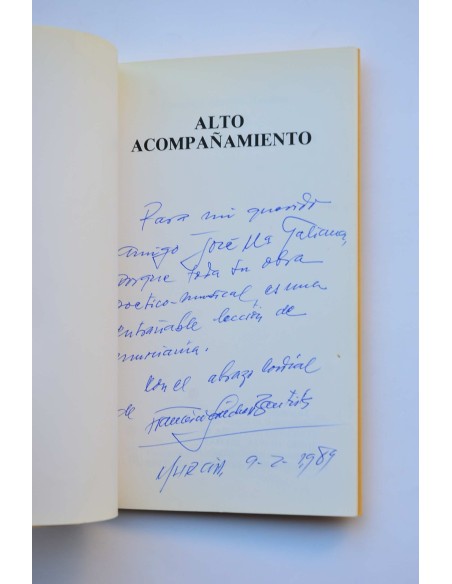 ALTO
ACOMPAÑAMIENTO
Para mi querido
amigo José Mª Galiana,
porque toda su obra
poético-musical, es una
entrañable lección de
murcianía.
Con el abrazo cordial
de Francisco Sánchez Bautista
Murcia, 9-2-1989